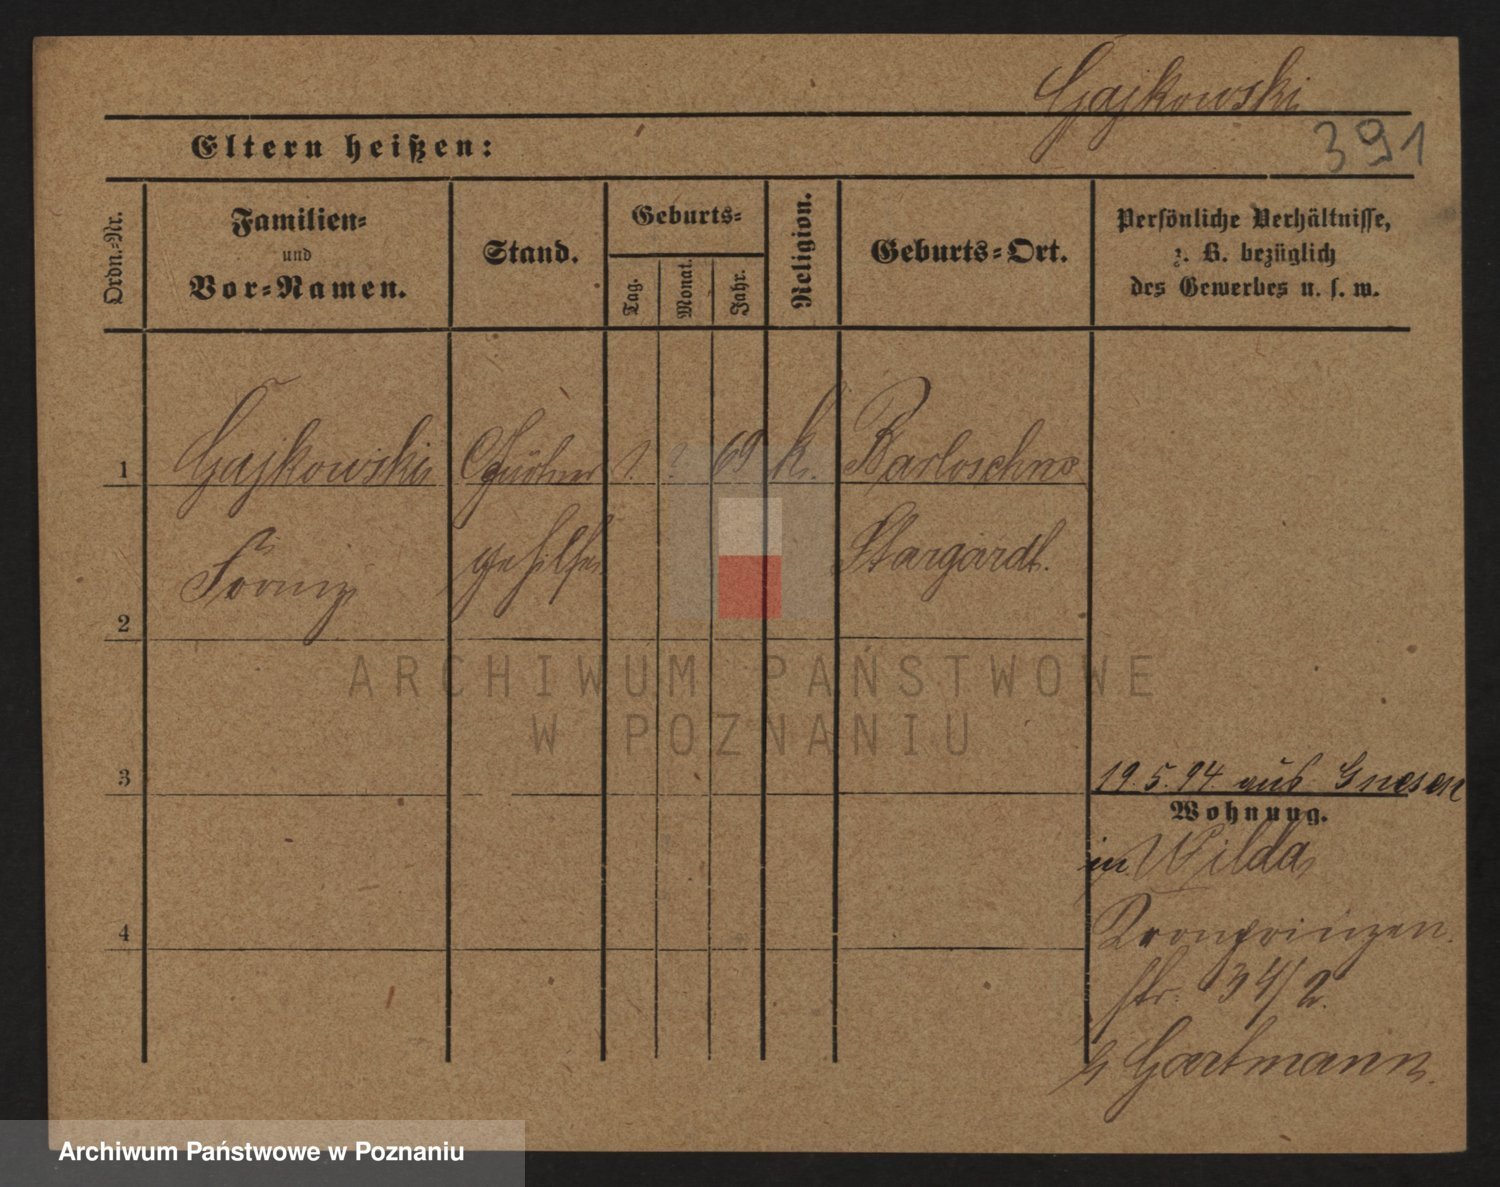 Gajkowski
391
Eltern heißen:
Ordn.-Nr.
Familien-
und
Vor-Namen.
Stand.
Geburts-
Tag.
Monat.
Jahr.
Religion.
Geburts-Ort.
Persönliche Verhältnisse,
z. B. bezüglich
des Gewerbes u. s. w.
1 Gajkowski Gärtner ? ? 69 k. Barloschno
Franz gehilfe Stargardt.
2
3
19.5.94 aus Gnesen
Wohnung.
in Wilda
4
Kronprinzen
str. 34/2.
b Hartmann.
ARCHIWUM PAŃSTWOWE
W POZNANIU
Archiwum Państwowe w Poznaniu